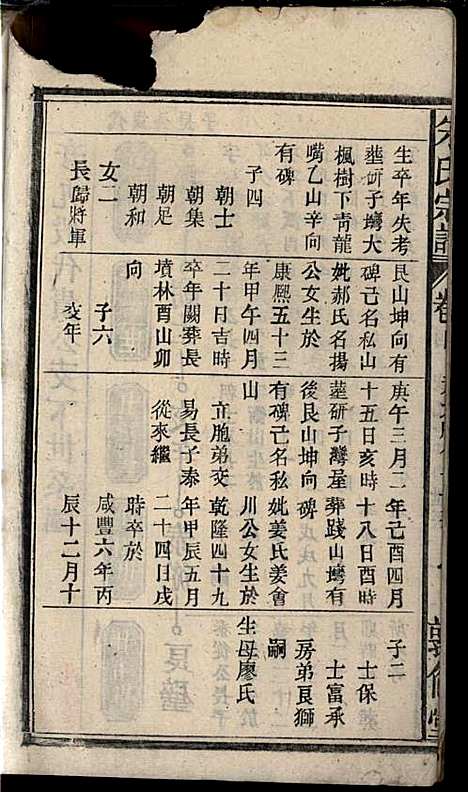 氏宗譜 卷
生卒年失考
塟研子塆大
楓樹下靑龍
嘴乙山辛向
有碑
子四
朝士
朝集
朝足
朝和
女二
長歸將軍
艮山坤向有
碑己名私山
妣郝氏名揚
公女生於
康熙五十三
年甲午四月
二十日吉時
卒年闕葬長
墳林酉山卯
向
子六
交年
庚午三月二
十五日亥時
塟研子灣屋
後艮山坤向
有碑己名私
山
立胞弟交
易長子泰
從來繼
年己酉四月
十八日酉時
葬踐山塆有
碑
妣姜氏姜會
川公女生於
乾隆四十九
年甲辰五月
二十四日戌
時卒於
咸豐六年丙
辰十二月十
子二
士保
士富承
房弟艮獅
嗣
生母廖氏